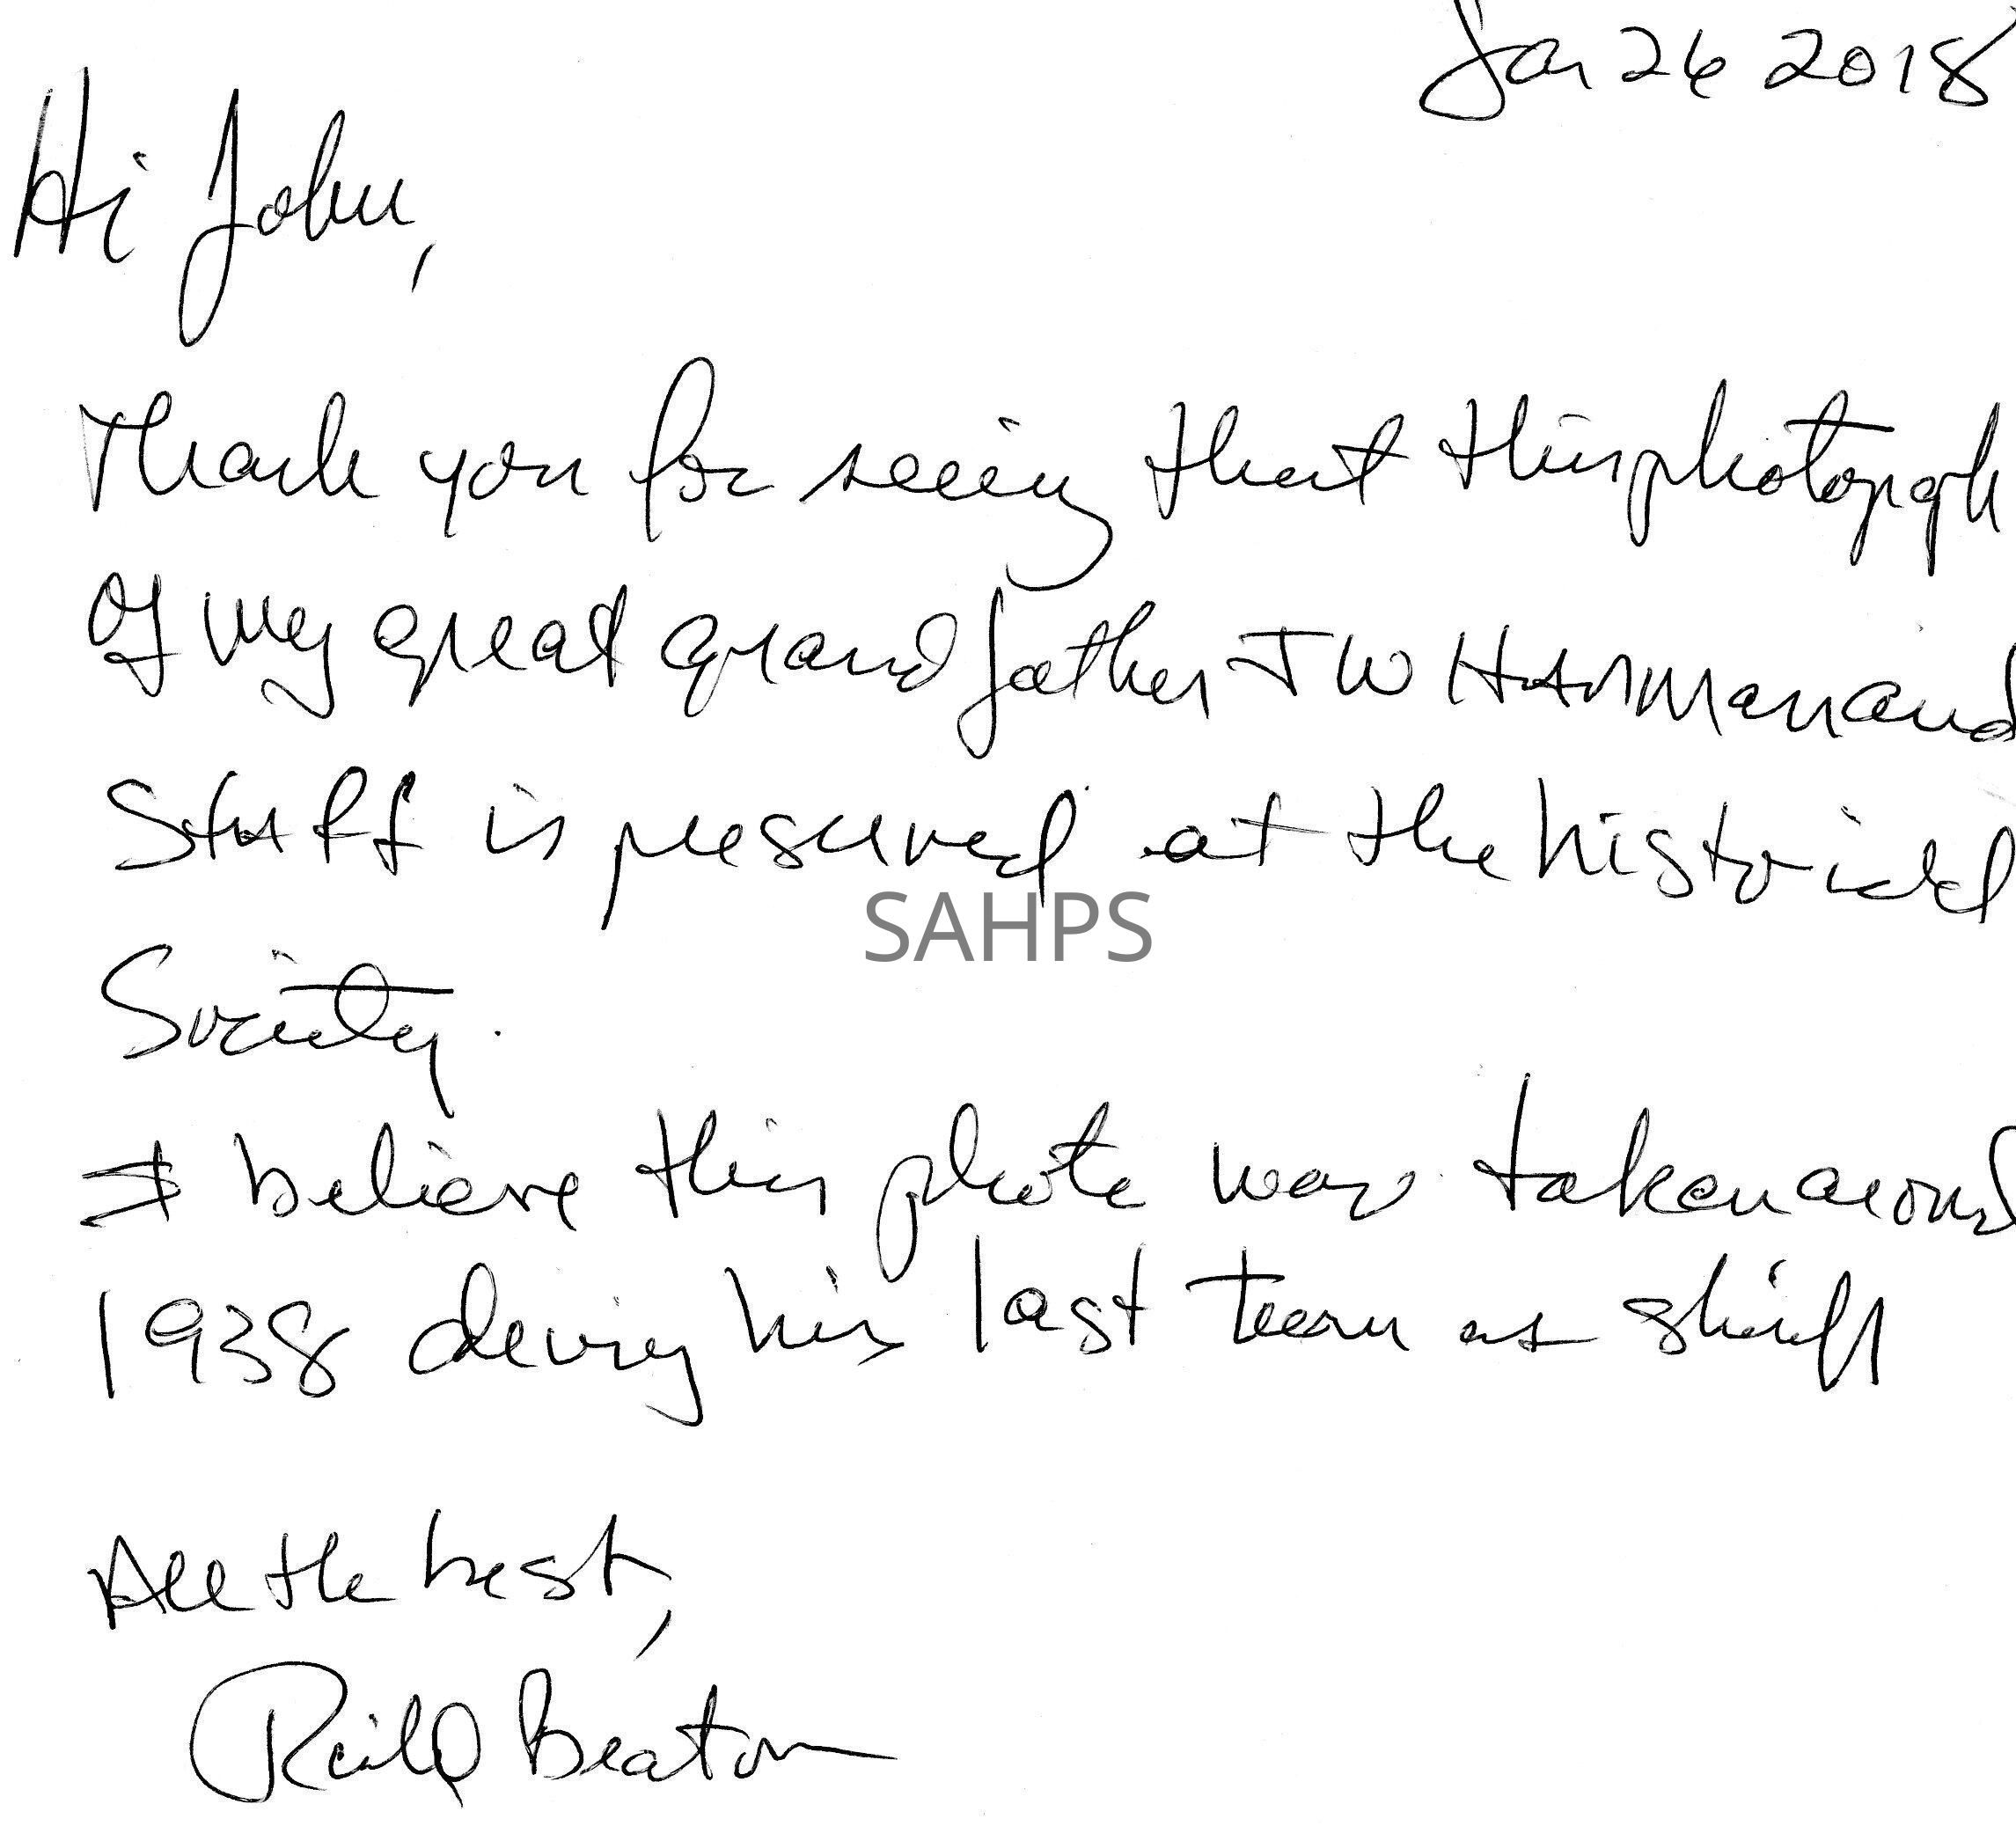 Jan 26 2018
Hi John,
Thank you for seeing that this photograph
of my great grandfather T W Harman and
Staff is preserved at the historical
SAHPS
Society.
I believe this photo was taken around
1938 during his last term as sheriff
All the best,
Beaton